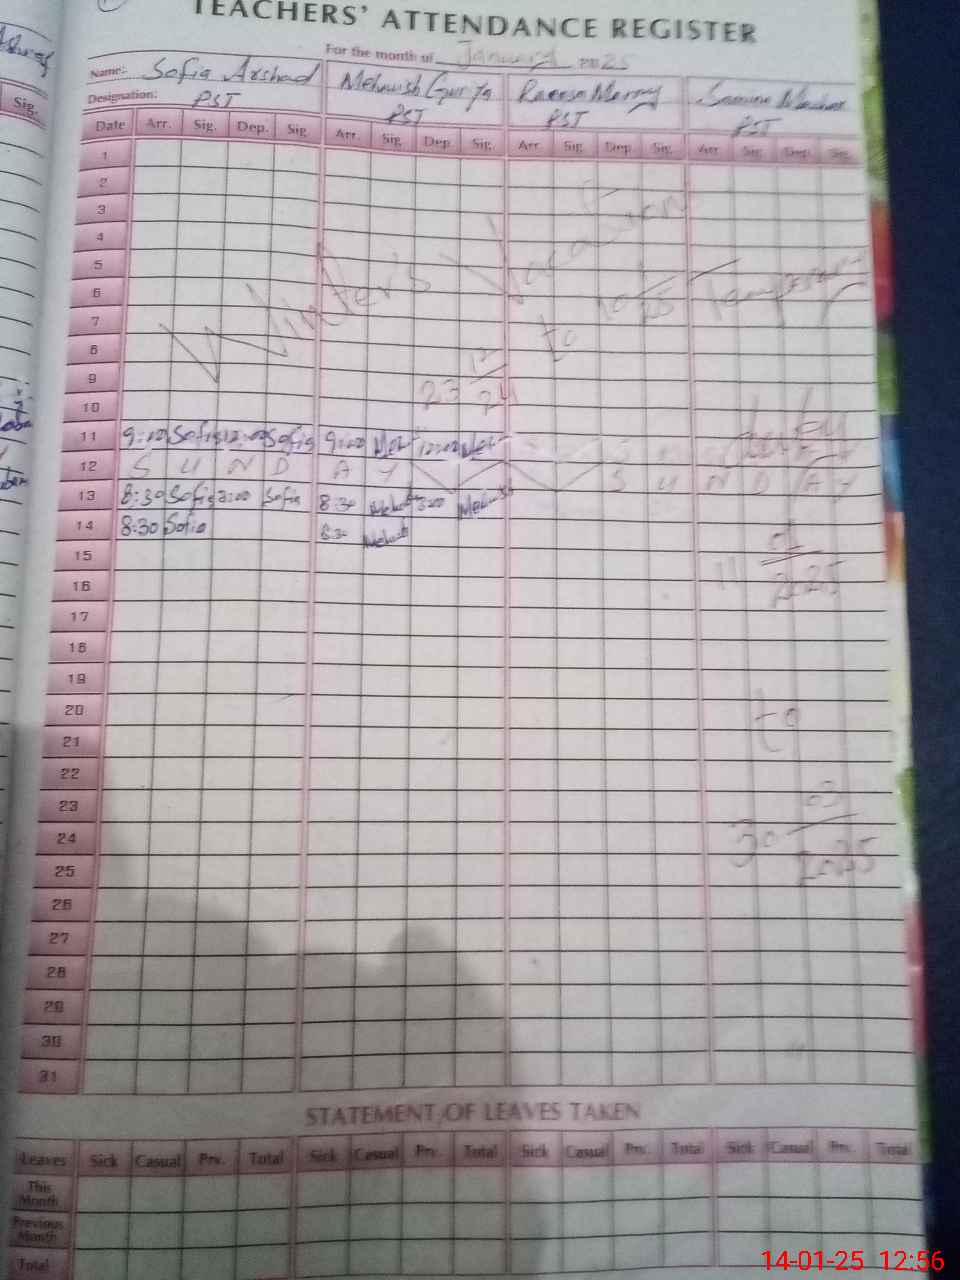 TEACHERS' ATTENDANCE REGISTER
For the month of January 2025
Name: Sofia Arshad Mehwish
Designation: PST PST PST PST
Date Arr. Sig. Dep. Sig. Arr. Sig. Dep. Sig. Arr. Sig. Dep. Sig. Arr. Sig. Dep. Sig.
1
2
3
4
5
6
7
8
9
10
Winters Vacation
23 12/24 to 10 1/25
Temporary
duty
11 9:00 Sofia 12:00 Sofia 9:00 Meh 12:00 Meh
12 S U N D A Y S U N D A Y
13 8:30 Sofia 2:00 Sofia 8:30 Mehwish
14 8:30 Sofia 8:30 Mehwish
15
11 01/2025
16
17
18
19
20
to
21
22
23
24
30 03/2025
25
26
27
28
29
30
31
STATEMENT OF LEAVES TAKEN
Leaves Sick Casual Prv. Total Sick Casual Prv. Total Sick Casual Prv. Total Sick Casual Prv. Total
This Month
Previous Month
Total
14-01-25 12:56